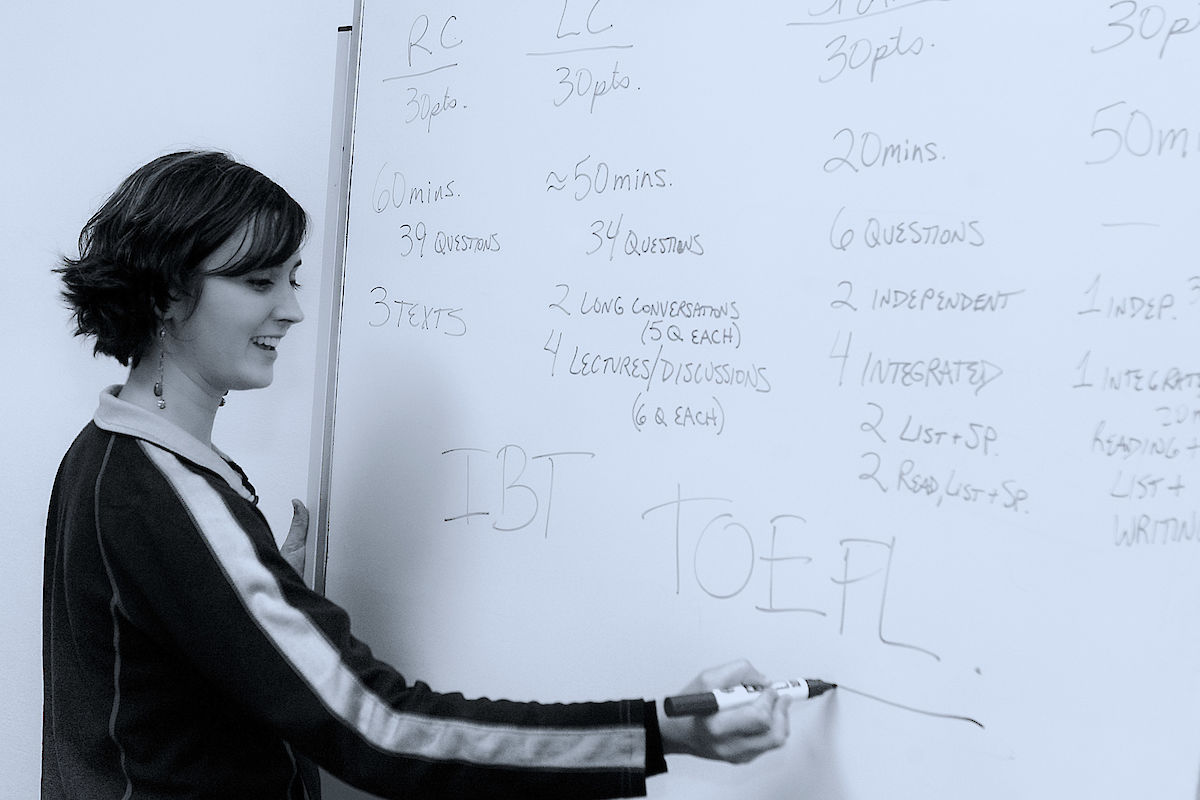 RC
30pts.
60mins.
39 QUESTIONS
3 TEXTS
LC
30pts.
≈50mins.
34 QUESTIONS
2 LONG CONVERSATIONS
(5 Q EACH)
4 LECTURES/DISCUSSIONS
(6 Q EACH)
30pts.
20mins.
6 QUESTIONS
2 INDEPENDENT
4 INTEGRATED
2 LIST+SP.
2 READ, LIST+SP.
30p
50m
—
1 INDEP. 3
1 INTEGRAT
READING+
LIST+
WRITING
IBT
TOEFL.